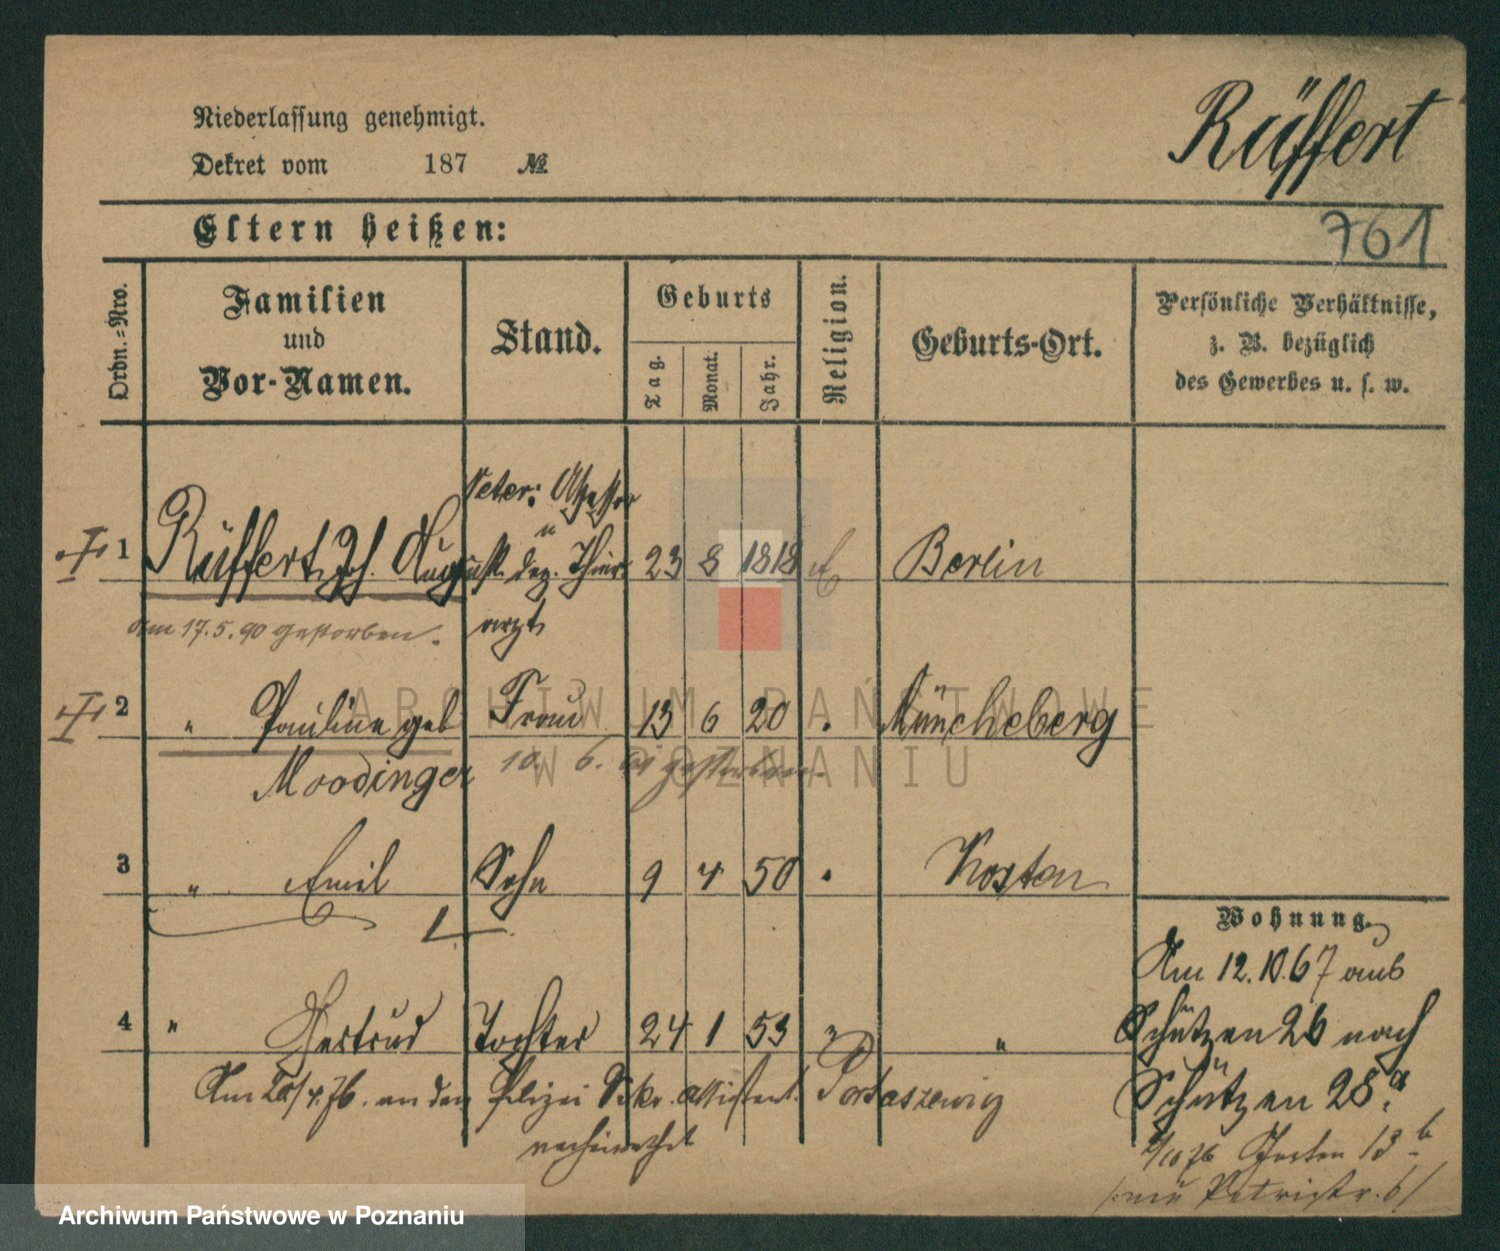 Niederlassung genehmigt.
Dekret vom 187 №
Rüffert
761
Eltern heißen:
Ordn.-Nro.
Familien
und
Vor-Namen.
Stand.
Geburts
Tag.
Monat.
Jahr.
Religion.
Geburts-Ort.
Persönliche Verhältnisse,
z. B. bezüglich
des Gewerbes u. s. w.
Veter: Assessor
u
1 Rüffert, Joh. August dep. Thier 23 8 1818 Berlin
arzt
am 17.5.90 gestorben.
2 " Pauline geb Frau 13 6 20 " Müncheberg
Moodinger
10. 6. gestorben.
3 " Emil Sohn 9 4 50 " Kosten
Wohnung.
Am 12.10.67 aus
4 " Gertrud Tochter 24 1 53 " "
Schützen 26 nach
Schützen 28.a
Am 20/4.76. an den Polizei Sekr. assistent. Portaszewicz
verheirathet
/10 76 Garten 13 b
/: nun Petristr. 6/
ARCHIWUM PAŃSTWOWE
W POZNANIU
Archiwum Państwowe w Poznaniu